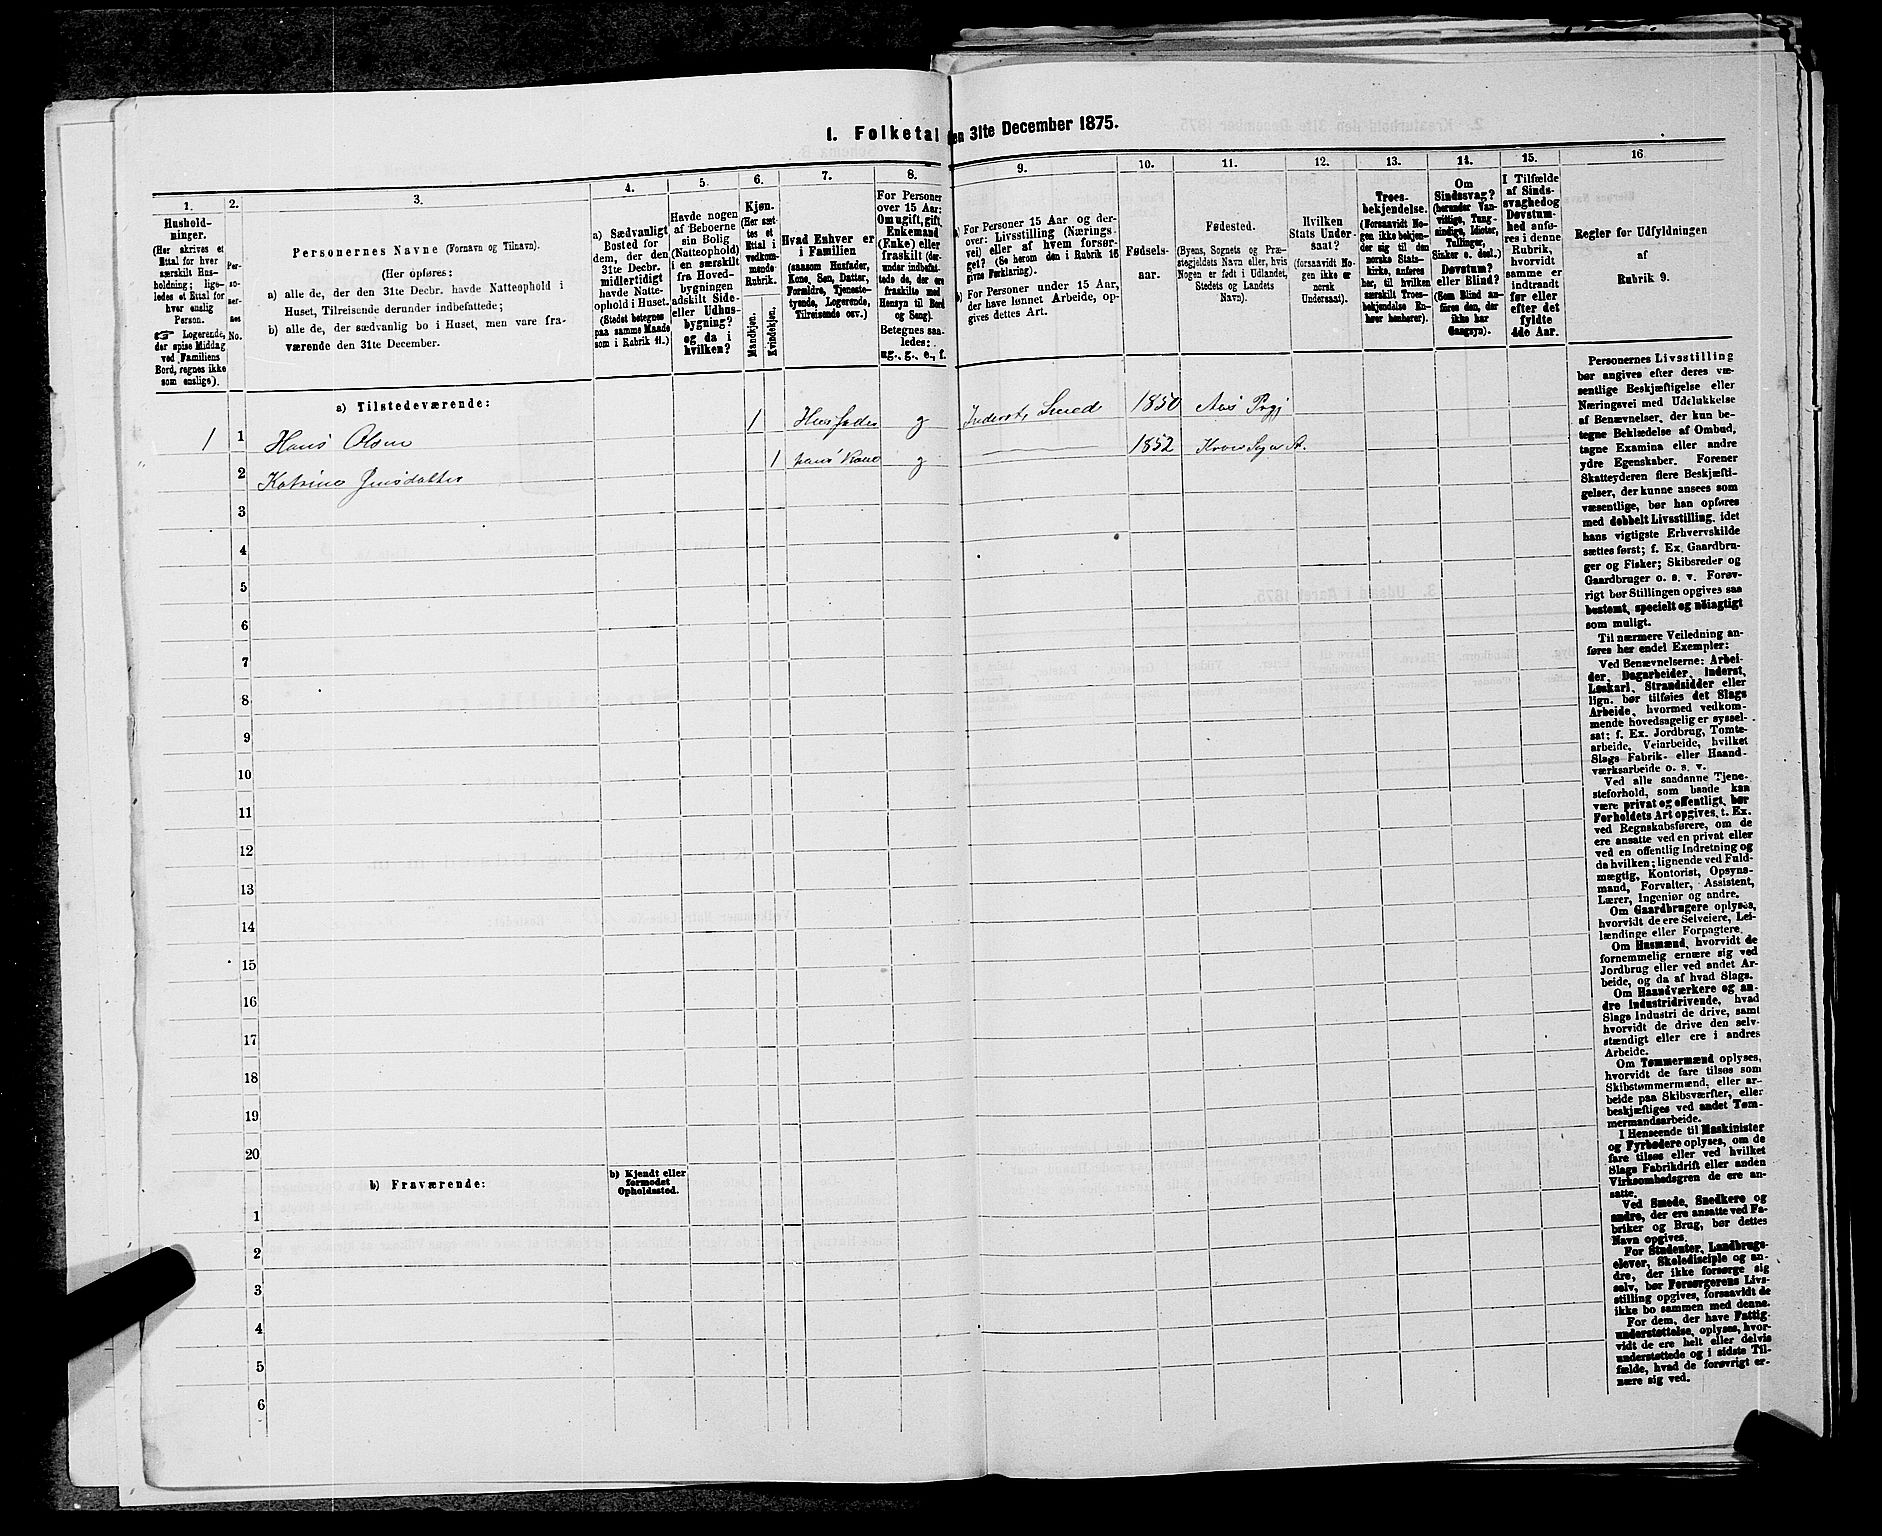 1. Folketal den 31te December 1875.
1.
2.
3.
4.
5.
6.
7.
8.
9.
10.
11.
12.
13.
14.
15.
16
Hushold-
ninger.
(Her skrives et
Ettal for hver
særskilt Hus-
holdning; lige-
ledes et Ettal for
hver enslig
Person.
☞ Logerende,
der spise Middag
ved Familiens
Bord, regnes ikke
som enslige).
Per-
so-
ner-
nes
No.
Personernes Navne (Fornavn og Tilnavn).
(Her opføres:
a) alle de, der den 31te Decbr. havde Natteophold i
Huset, Tilreisende derunder indbefattede;
b) alle de, der sædvanlig bo i Huset, men vare fra-
værende den 31te December.
a) Sædvanligt
Bosted for
dem, der den
31te Decbr.
midlertidigt
havde Natte-
ophold i Huset.
(Stedet betegnes
paa samme Maade
som i Rubrik 11.)
Havde nogen
af Beboerne
sin Bolig
(Natteophold)
i en særskilt
fra Hoved-
bygningen
adskilt Side-
eller Udhus-
bygning?
og da i
hvilken?
Kjøn.
(Her sæt-
tes et
Ettal i
vedkom-
mende
Rubrik.
Mandkjøn.
Kvindekjøn.
Hvad Enhver er
i Familien
(saasom Husfader,
Kone, Søn, Datter,
Forældre, Tjeneste-
tyende, Logerende,
Tilreisende osv.)
For Personer
over 15 Aar:
Om ugift, gift,
Enkemand
(Enke) eller
fraskilt (der-
under indbefat-
tede de, der ere
fraskilte med
Hensyn til Bord
og Seng).
Betegnes saa-
ledes:
ug., g., e., f.
a) For Personer 15 Aar og der-
over: Livsstilling (Nærings-
vei) eller af hvem forsør-
get? (Se herom den i Rubrik 16
givne Forklaring).
b) For Personer under 15 Aar,
der have lønnet Arbeide, op-
gives dettes Art.
Fødsels-
aar.
Fødested.
(Byens, Sognets og Præ-
stegjeldets Navn eller, hvis
Nogen er født i Udlandet,
Stedets og Landets
Navn).
Hvilken
Stats Under-
saat?
(forsaavidt No-
gen ikke er
norsk
Undersaat).
Troes-
bekjendelse.
(Forsaavidt No-
gen ikke bekjen-
der sig til den
norske Stats-
kirke, anføres
her, til hvilken
særskilt Troes-
bekjendelse En-
hver henhører).
Om
Sindssvag?
(herunder Van-
vittige, Tung-
sindige, Idioter,
Tullinger,
Sinker o. desl.)
Døvstum?
eller Blind?
(Som Blind an-
føres den, der
ikke har
Gangsyn).
I Tilfælde
af Sinds-
svaghed og
Døvstum-
hed anfø-
res i denne
Rubrik,
hvorvidt
samme er
indtrandt
før eller
efter det
fyldte
4de Aar.
Regler for Udfyldningen
af
Rubrik 9.
a) Tilstedeværende:
1 1 Hans Olsen 1 Husfader g Inderst, Smed 1850 Aas Prgj
" 2 Katrine Jensdatter 1 hans Kone g 1852
3
4
5
6
7
8
9
10
11
12
13
14
15
16
17
18
19
20
b) Fraværende:
b) Kjendt eller
formodet
Opholdssted.
1
2
3
4
5
6
Personernes Livsstilling
bør angives efter deres væ-
sentlige Beskjæftigelse eller
Næringsvei med Udelukkelse
af Benævnelser, der kun be-
tegne Beklædelse af Ombud,
tagne Examina eller andre
ydre Egenskaber. Forener
Skatteyderen flere Beskjæfti-
gelser, der kunne ansees som
væsentlige, bør han opføres
med dobbelt Livsstilling, idet
hans vigtigste Erhvervskilde
sættes først; f. Ex. Gaardbru-
ger og Fisker; Skibsreder og
Gaardbruger o. s. v. Forøv-
rigt bør Stillingen opgives saa
bestemt, specielt og nøiagtigt
som muligt.
Til nærmere Veiledning an-
føres her endel Exempler:
Ved Benævnelserne: Arbei-
der, Dagarbeider, Inderst,
Løskarl, Strandsidder eller
lign. bør tilføies det Slags
Arbeide, hvormed vedkom-
mende hovedsagelig er syssel-
sat; f. Ex. Jordbrug, Tomte-
arbeide, Veiarbeide, hvilket
Slags Fabrik- eller Haand-
værksarbeide o. s. v.
Ved alle saadanne Tjene-
steforhold, som baade kan
være privat og offentligt, bør
Forholdets Art opgives, f. Ex.
ved Regnskabsførere, om de
ere ansatte ved en privat eller
ved en offentlig Indretning og
da hvilken; lignende ved Fuld-
mægtig, Kontorist, Opsyns-
mand, Forvalter, Assistent,
Lærer, Ingeniør og andre.
Om Gaardbrugere oplyses,
hvorvidt de ere Selveiere, Lei-
lændinge eller Forpagtere.
Om Husmænd, hvorvidt de
fornemmelig ernære sig ved
Jordbrug eller ved andet Ar-
beide, og da af hvad Slags.
Om Haandværkere og an-
dre Industridrivende, hvad
Slags Industri de drive, samt
hvorvidt de drive den selv-
stændigt eller ere i andres
Arbeide.
Om Tømmermænd oplyses,
hvorvidt de fare tilsøs som
Skibstømmermænd, eller ar-
beide paa Skibsværfter, eller
beskjæftiges ved andet Tøm-
mermandsarbeide.
I Henseende til Maskinister
og Fyrbødere oplyses, om de
fare tilsøs eller ved hvilket
Slags Fabrikdrift eller anden
Virksomhedsgren de ere an-
satte.
Ved Smede, Snedkere og
andre, der ere ansatte ved Fa-
briker og Brug, bør dettes
Navn opgives.
For Studenter, Landbrugs-
elever, Skoledisciple og an-
dre, der ikke forsørge sig
selv, bør Forsørgerens Livs-
stilling opgives, forsaavidt de
ikke bo sammen med denne.
For dem, der have Fattig-
understøttelse, oplyses, hvor-
vidt de ere helt eller delvis
understøttede og i sidste Til-
fælde, hvad de forøvrigt er-
nære sig ved.